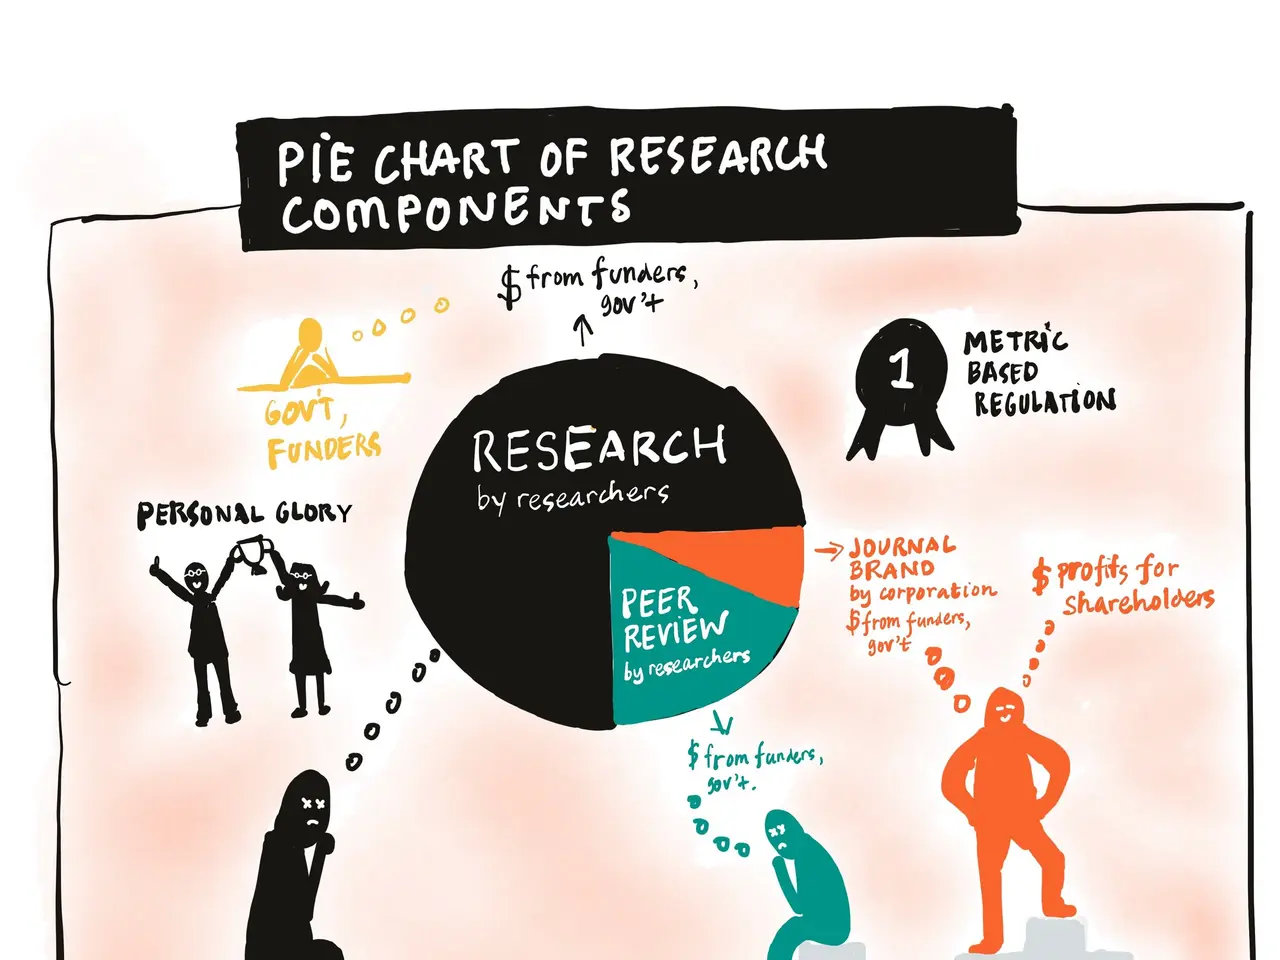 PIE CHART OF RESEARCH
COMPONENTS
$ from funders,
gov't
GOV'T,
FUNDERS
1
METRIC
BASED
REGULATION
RESEARCH
by researchers
PERSONAL GLORY
PEER
REVIEW
by researchers
JOURNAL
BRAND
by corporation
$ from funders,
gov't
$ profits for
shareholders
$ from funders,
gov't.